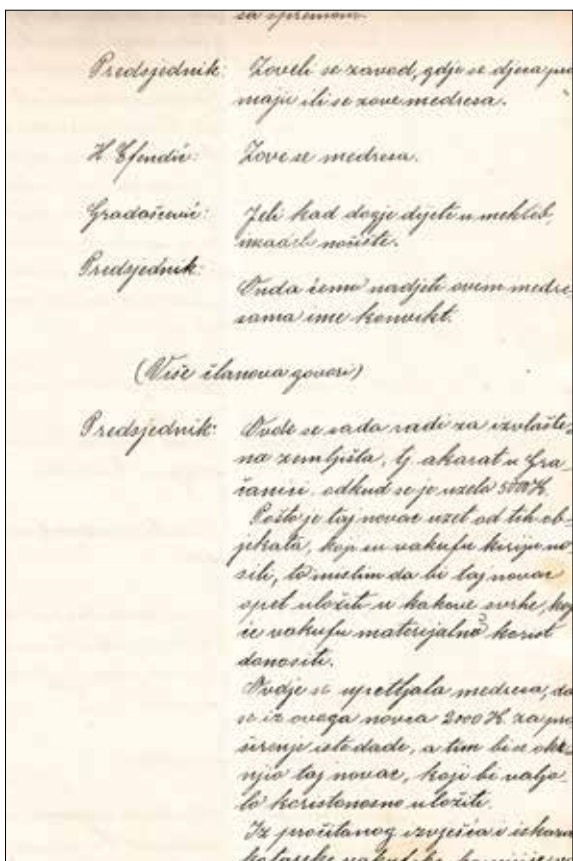 sa spremom.
Predsjednik: Zoveli se zavod, gdje se djeca
maju ili se zove medresa.
H. Efendić: Zove se medresa.
Gradaščević: Jeli kad dogje dijete u mekteb,
nočište.
Predsjednik:
Onda ćemo nadjeti ovem medre
sama ime konvikt.
(Više članova govori)
Predsjednik: Ovde se sada radi za izvlašte-
na zemljišta, tj. akarat u Gra-
čanici, odkud se je uzelo 5000 K.
Pošto je taj novac uzet od tih ob-
jekata, koji su vakufu kiriju no
sili, to mislim da bi taj novac
opet uložiti u kakove svrhe, koj
će vakufu materijalno korist
donositi.
Ovdje se upetljala medresa, da
se iz ovoga novca 2000 K za pro
širenje iste dade, a tim bi se okr
njio taj novac, koji bi valja-
lo koristonosno uložiti.
Iz pročitanog izvješća i iskaza
kotarske vakufske